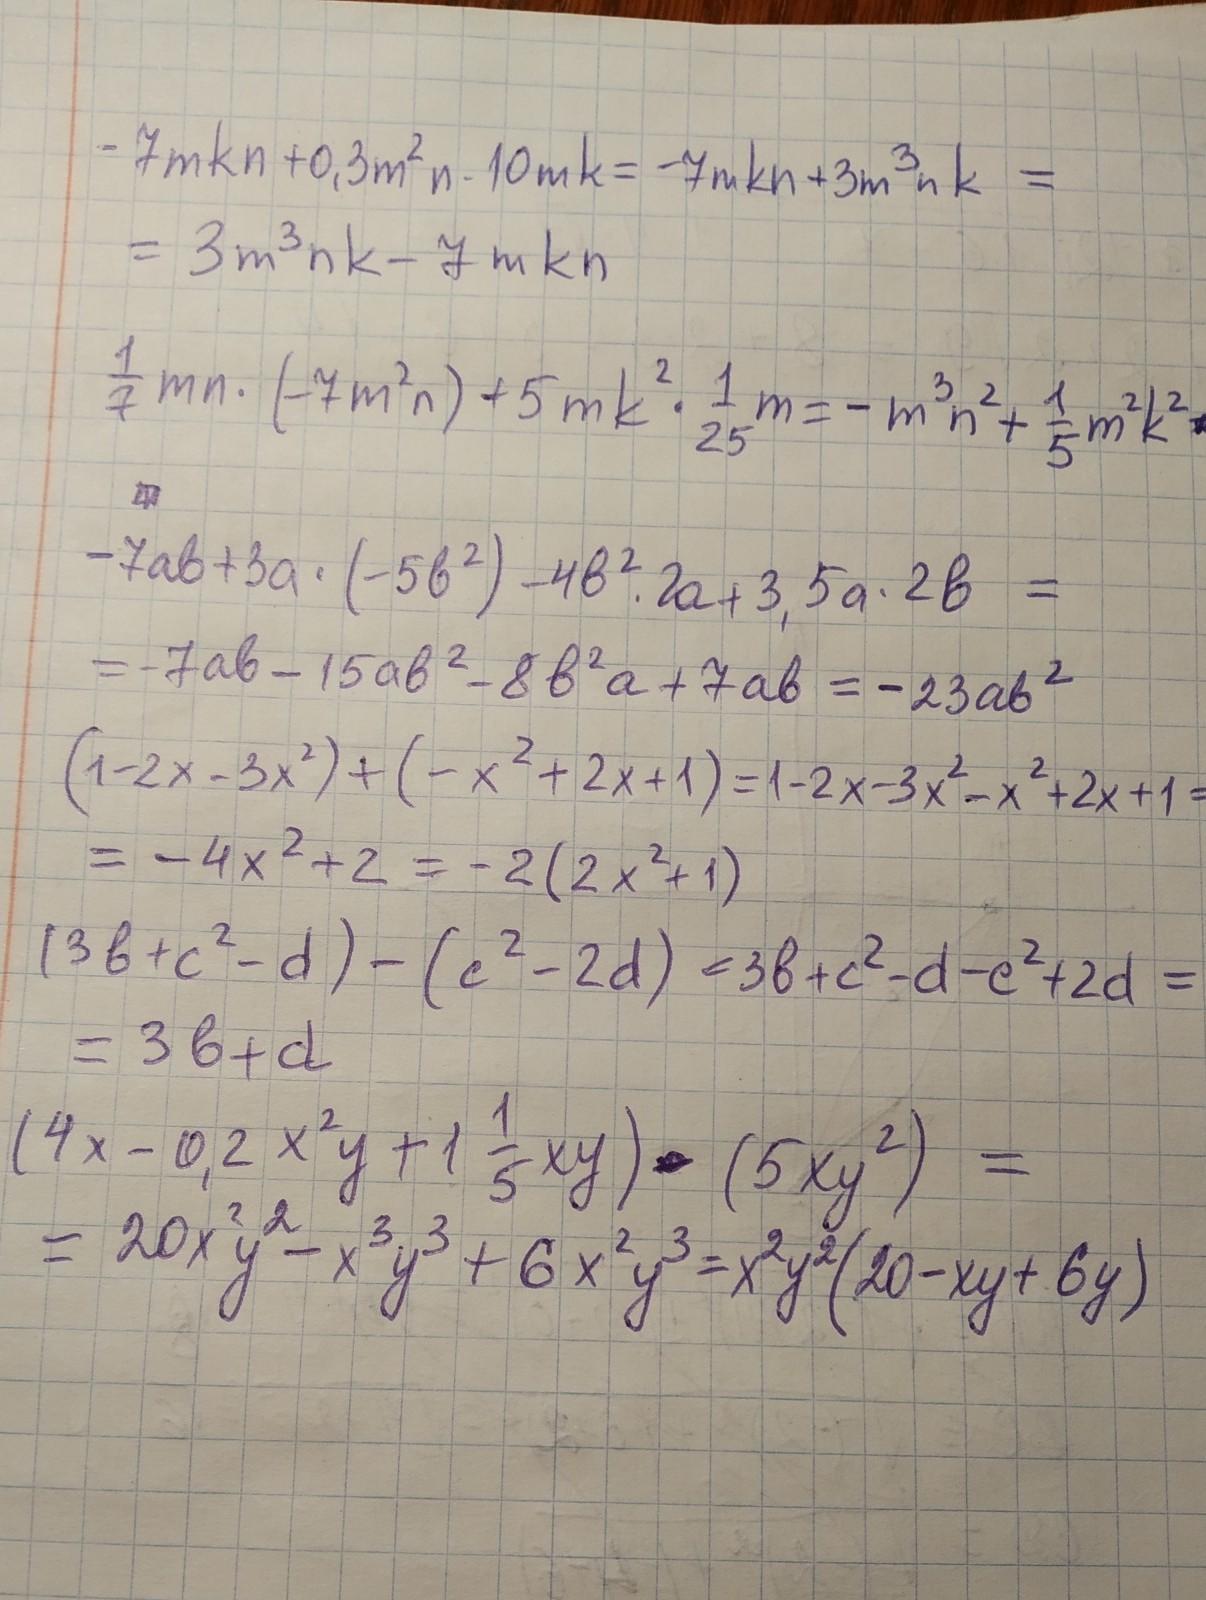 -7mkn+0,3m²n·10mk=-7mkn+3m³nk=
=3m³nk-7mkn
1/7 mn·(-7m²n)+5mk²·1/25 m=-m³n²+1/5 m²k²
-7ab+3a·(-5b²)-4b²·2a+3,5a·2b=
=-7ab-15ab²-8b²a+7ab=-23ab²
(1-2x-3x²)+(-x²+2x+1)=1-2x-3x²-x²+2x+1=
=-4x²+2=-2(2x²+1)
(3b+c²-d)-(c²-2d)=3b+c²-d-c²+2d=
=3b+d
(4x-0,2x²y+1 1/5 xy)·(5xy²)=
=20x²y²-x³y³+6x²y³=x²y²(20-xy+6y)